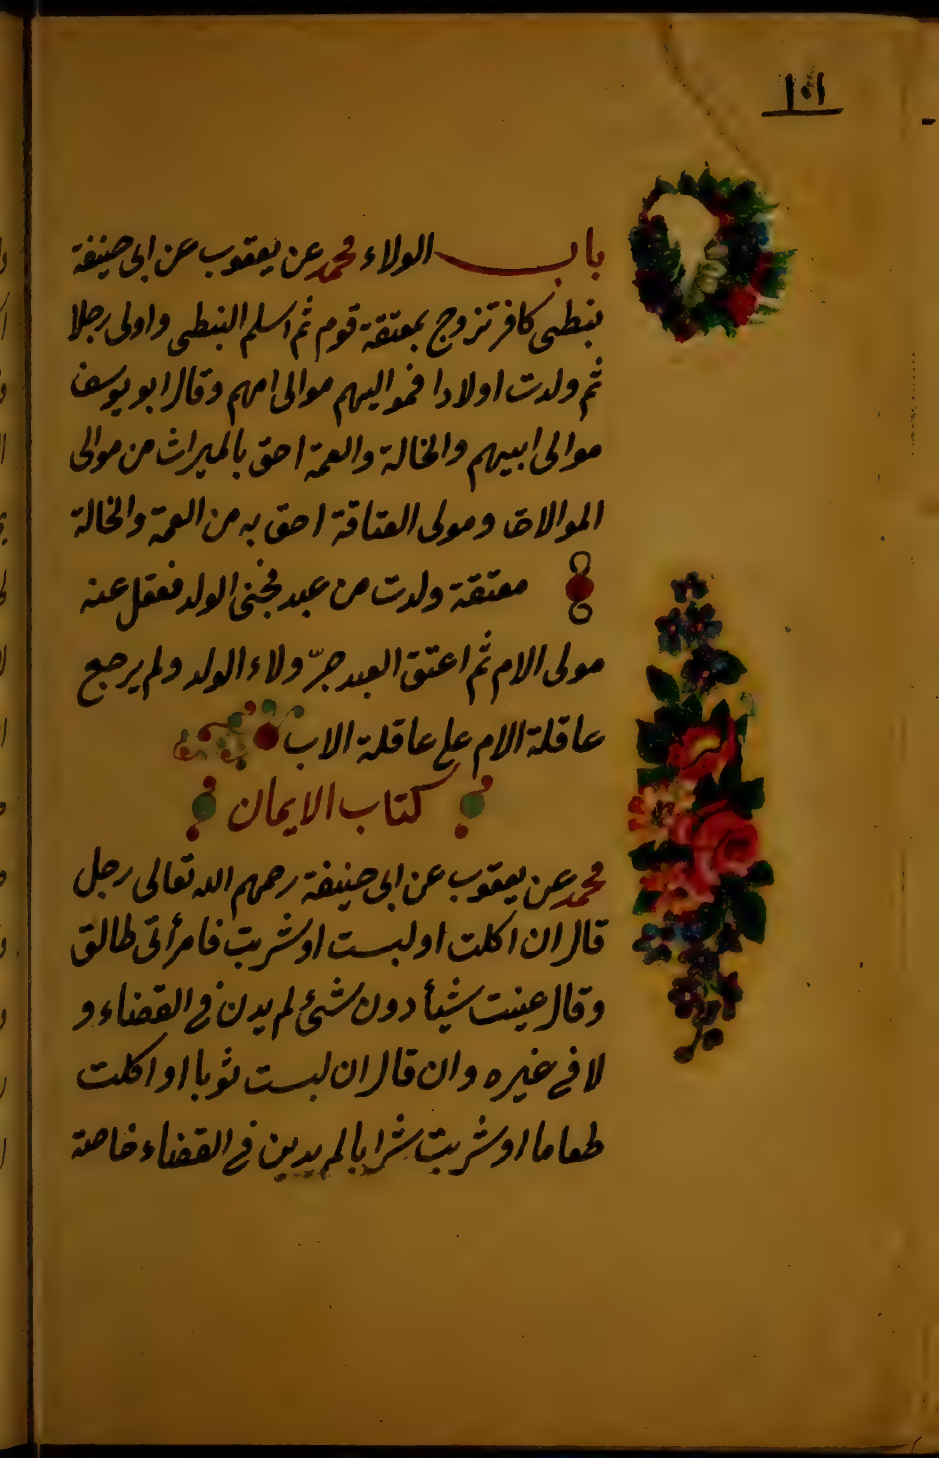 ١٥١
باب الولاء محمد عن يعقوب عن ابى حنيفة
نبطى كافر تزوج بمعتقة قوم ثم اسلم النبطى واولى رجلا
ثم ولدت اولادا فمواليهم موالى امهم وقال ابو يوسف
موالى ابيهم والخالة والعمة احق بالميراث من موالى
الموالات ومولى العتاقة احق به من العمة والخالة
معتقة ولدت من عبد فجنى الولد فعقل عنه
مولى الام ثم اعتق العبد جرّ ولاء الولد ولم يرجع
عاقلة الام على عاقلة الاب
كتاب الايمان
محمد عن يعقوب عن ابى حنيفة رحمهم الله تعالى رجل
قال ان اكلت او لبست او شربت فامرأتى طالق
وقال عينت شيأ دون شئ لم يدن فى القضاء و
لا فى غيره وان قال ان لبست ثوبا او اكلت
طعاما او شربت شرابا لم يدين فى القضاء خاصة